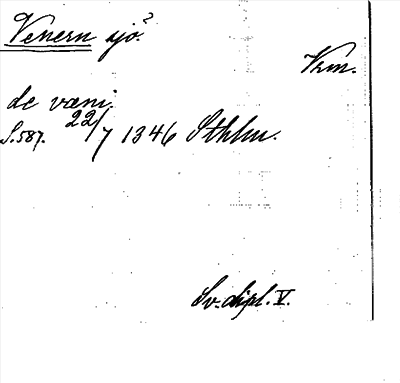 Venern sjö?
Vrm.
de væni.
S. 587. 22/7 1346 Sthlm.
Sv. dipl. V.